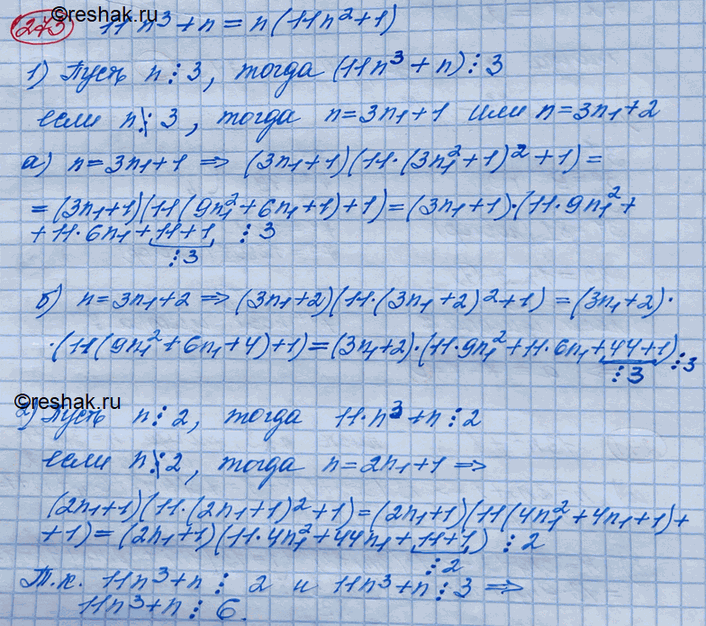 ©reshak.ru
273 11n³+n = n(11n²+1)
1) Пусть n⋮3, тогда (11n³+n)⋮3
если n⋮̸3, тогда n=3n₁+1 или n=3n₁+2
а) n=3n₁+1 ⇒ (3n₁+1)(11·(3n₁²+1)²+1)=
=(3n₁+1)(11(9n₁²+6n₁+1)+1)=(3n₁+1)·(11·9n₁²+
+11·6n₁+11+1 ⋮3
⋮3
б) n=3n₁+2 ⇒ (3n₁+2)(11·(3n₁+2)²+1)=(3n₁+2)·
·(11(9n₁²+6n₁+4)+1)=(3n₁+2)·(11·9n₁²+11·6n₁+44+1)⋮3
⋮3
©reshak.ru
2) Пусть n⋮2, тогда 11·n³+n⋮2
если n⋮̸2, тогда n=2n₁+1 ⇒
(2n₁+1)(11·(2n₁+1)²+1)=(2n₁+1)(11(4n₁²+4n₁+1)+
+1)=(2n₁+1)(11·4n₁²+44n₁+11+1) ⋮2
⋮2
Т.к. 11n³+n⋮2 и 11n³+n⋮3 ⇒
11n³+n⋮6.